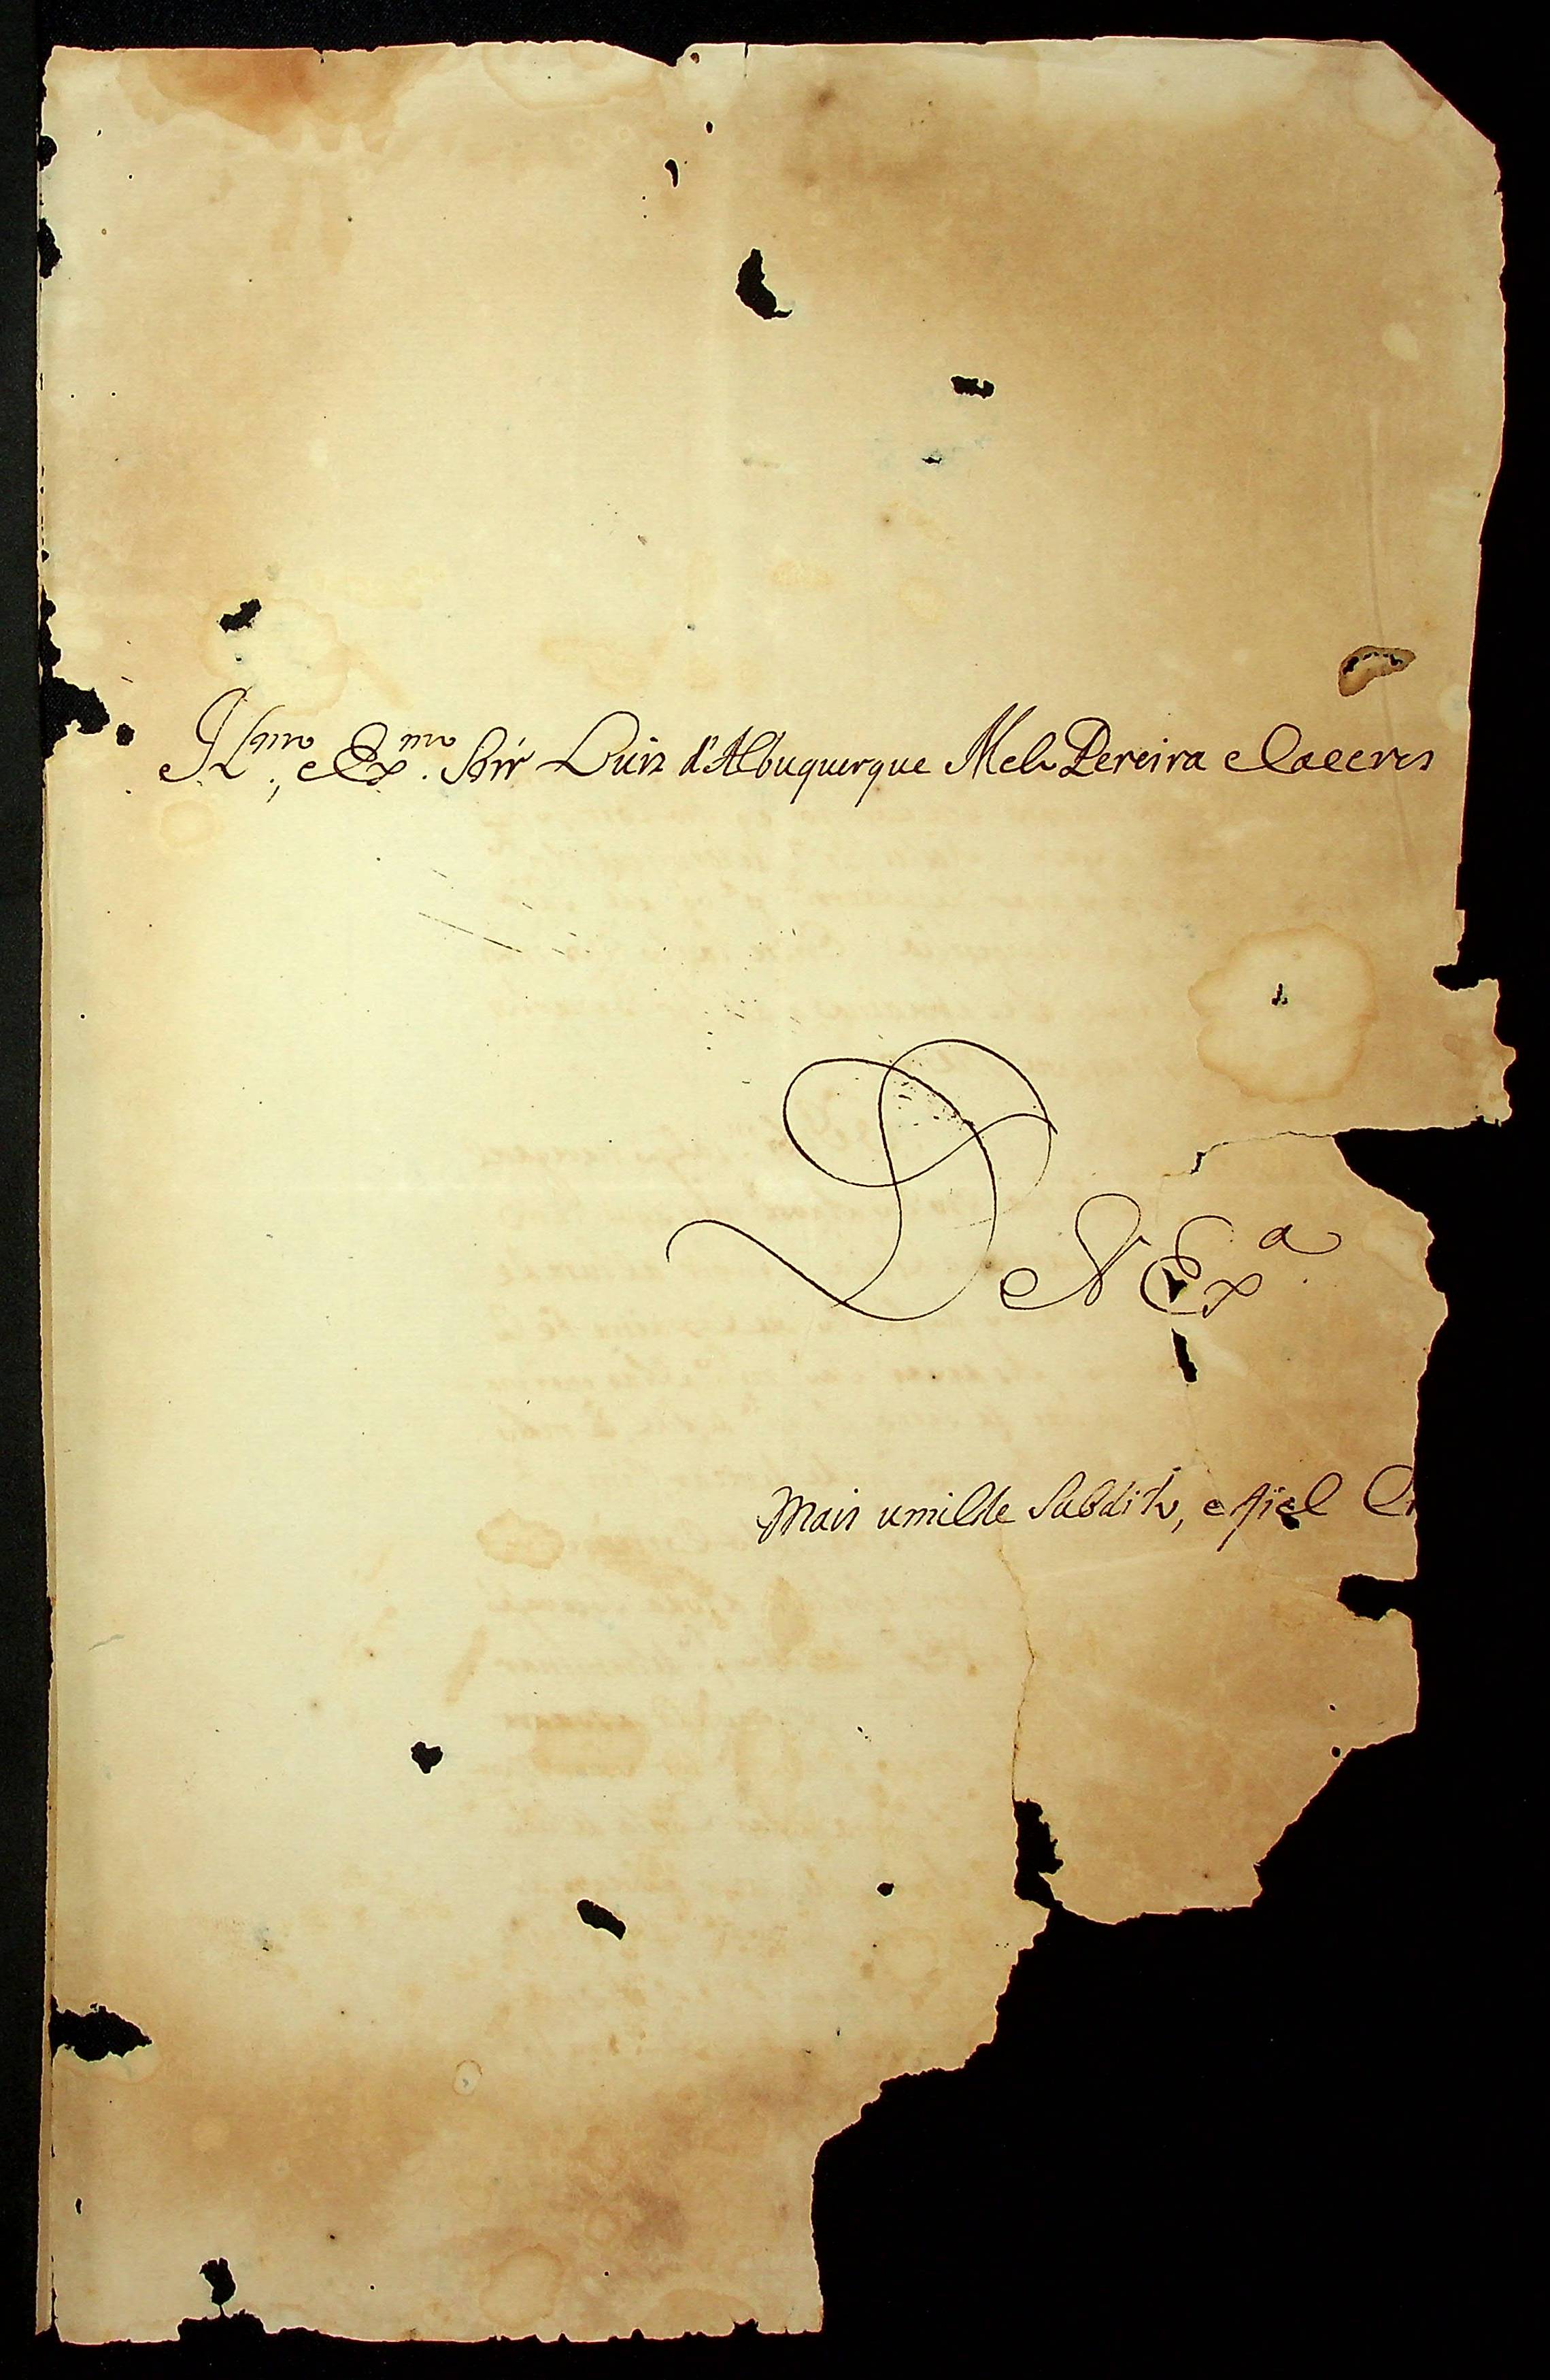 Illmo, e Exmo. Snr Luiz d'Albuquerque Mello Pereira e Caceres
De V Exa.
Mais umilde Subdito, e fiel